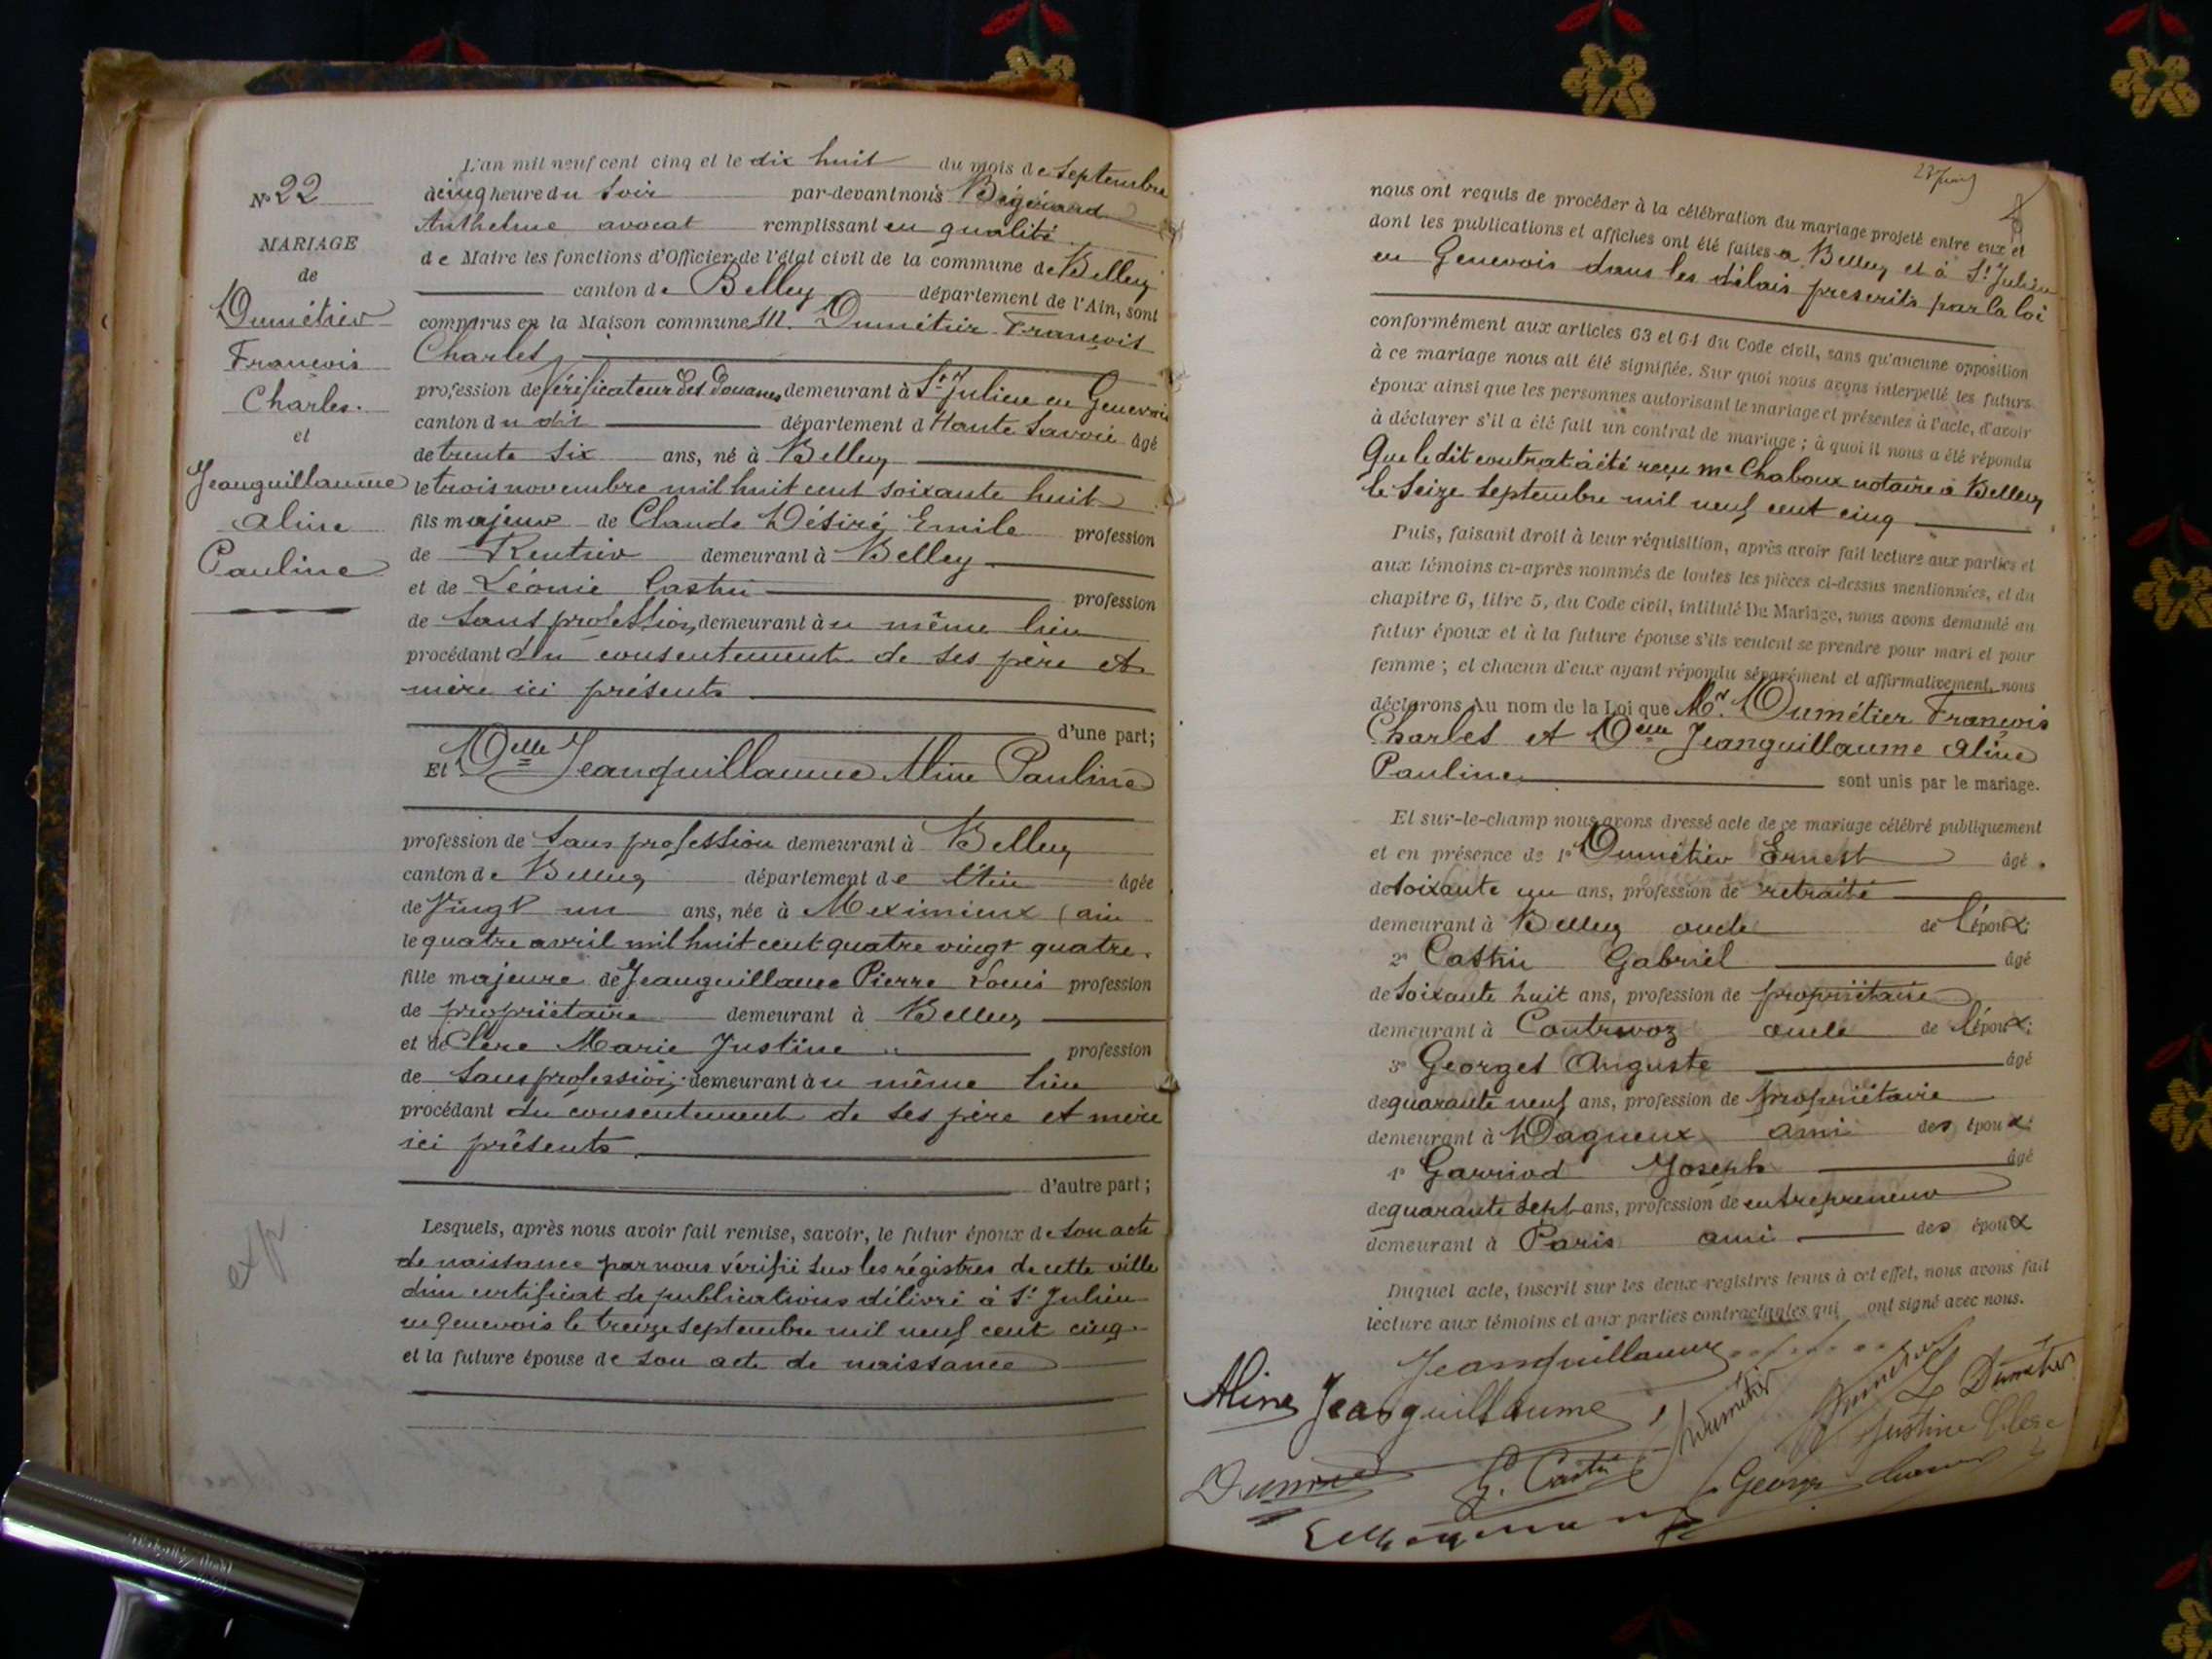 N° 22
MARIAGE
de
Dumétier
François
Charles.
et
Jeanguillaume
Aline
Pauline
L'an mil neuf cent cinq et le dix huit du mois de septembre
à cinq heure du soir par-devant nous
Anthelme avocat remplissant en qualité
de Maire les fonctions d'Officier de l'état civil de la commune de Belley
canton de Belley département de l'Ain, sont
comparus en la Maison commune M. Dumétier François
Charles,
profession de Vérificateur des Douanes demeurant à St Julien en Genevois
canton du dit département d Haute Savoie âgé
de trente six ans, né à Belley
le trois novembre mil huit cent soixante huit
fils majeur de Claude Désiré Emile profession
de Rentier demeurant à Belley
et de Léonie Castin profession
de sans profession, demeurant au même lieu
procédant du consentement de ses père et
mère ici présents
d'une part;
Et Delle Jeanguillaume Aline Pauline
profession de sans profession demeurant à Belley
canton de Belley département de l'Ain âgée
de Vingt un ans, née à Meximieux (ain
le quatre avril mil huit cent quatre vingt quatre.
fille majeure de Jeanguillaume Pierre Louis profession
de propriétaire demeurant à Belley
et de Clerc Marie Justine profession
de sans profession, demeurant au même lieu
procédant du consentement de ses père et mère
ici présents
d'autre part;
exp
Lesquels, après nous avoir fait remise, savoir, le futur époux de son acte
de naissance par nous vérifié sur les régistres de cette ville
d'un certificat de publications délivré à St Julien
en Genevois le treize septembre mil neuf cent cinq.
et la future épouse de son acte de naissance
nous ont requis de procéder à la célébration du mariage projeté entre eux et
dont les publications et affiches ont été faites à Belley et à St Julien
en Genevois dans les délais prescrits par la loi
conformément aux articles 63 et 64 du Code civil, sans qu'aucune opposition
à ce mariage nous ait été signifiée. Sur quoi nous avons interpellé les futurs
époux ainsi que les personnes autorisant le mariage et présentes à l'acte, d'avoir
à déclarer s'il a été fait un contrat de mariage; à quoi il nous a été répondu
Que le dit contrat a été reçu me Chaboux notaire à Belley
le seize septembre mil neuf cent cinq
Puis, faisant droit à leur réquisition, après avoir fait lecture aux parties et
aux témoins ci-après nommés de toutes les pièces ci-dessus mentionnées, et du
chapitre 6, titre 5, du Code civil, intitulé Du Mariage, nous avons demandé au
futur époux et à la future épouse s'ils veulent se prendre pour mari et pour
femme; et chacun d'eux ayant répondu séparément et affirmativement, nous
déclarons Au nom de la Loi que Mr. Dumétier François
Charles et Delle Jeanguillaume Aline
Pauline sont unis par le mariage.
Et sur-le-champ nous avons dressé acte de ce mariage célébré publiquement
et en présence de 1° Dumétier Ernest âgé
de soixante un ans, profession de retraité
demeurant à Belley oncle de l'époux;
2° Castin Gabriel âgé
de soixante huit ans, profession de propriétaire
demeurant à Contrevoz oncle de l'époux;
3° Georges Auguste âgé
de quarante neuf ans, profession de propriétaire
demeurant à Dagneux ami des époux;
4° Garriod Joseph âgé
de quarante sept ans, profession de entrepreneur
demeurant à Paris ami des époux
Duquel acte, inscrit sur les deux registres tenus à cet effet, nous avons fait
lecture aux témoins et aux parties contractantes qui ont signé avec nous.
Jeanguillaume
Aline Jeanguillaume
Dumétier
L Dumétier
Justine Clerc
G. Castin
Georges